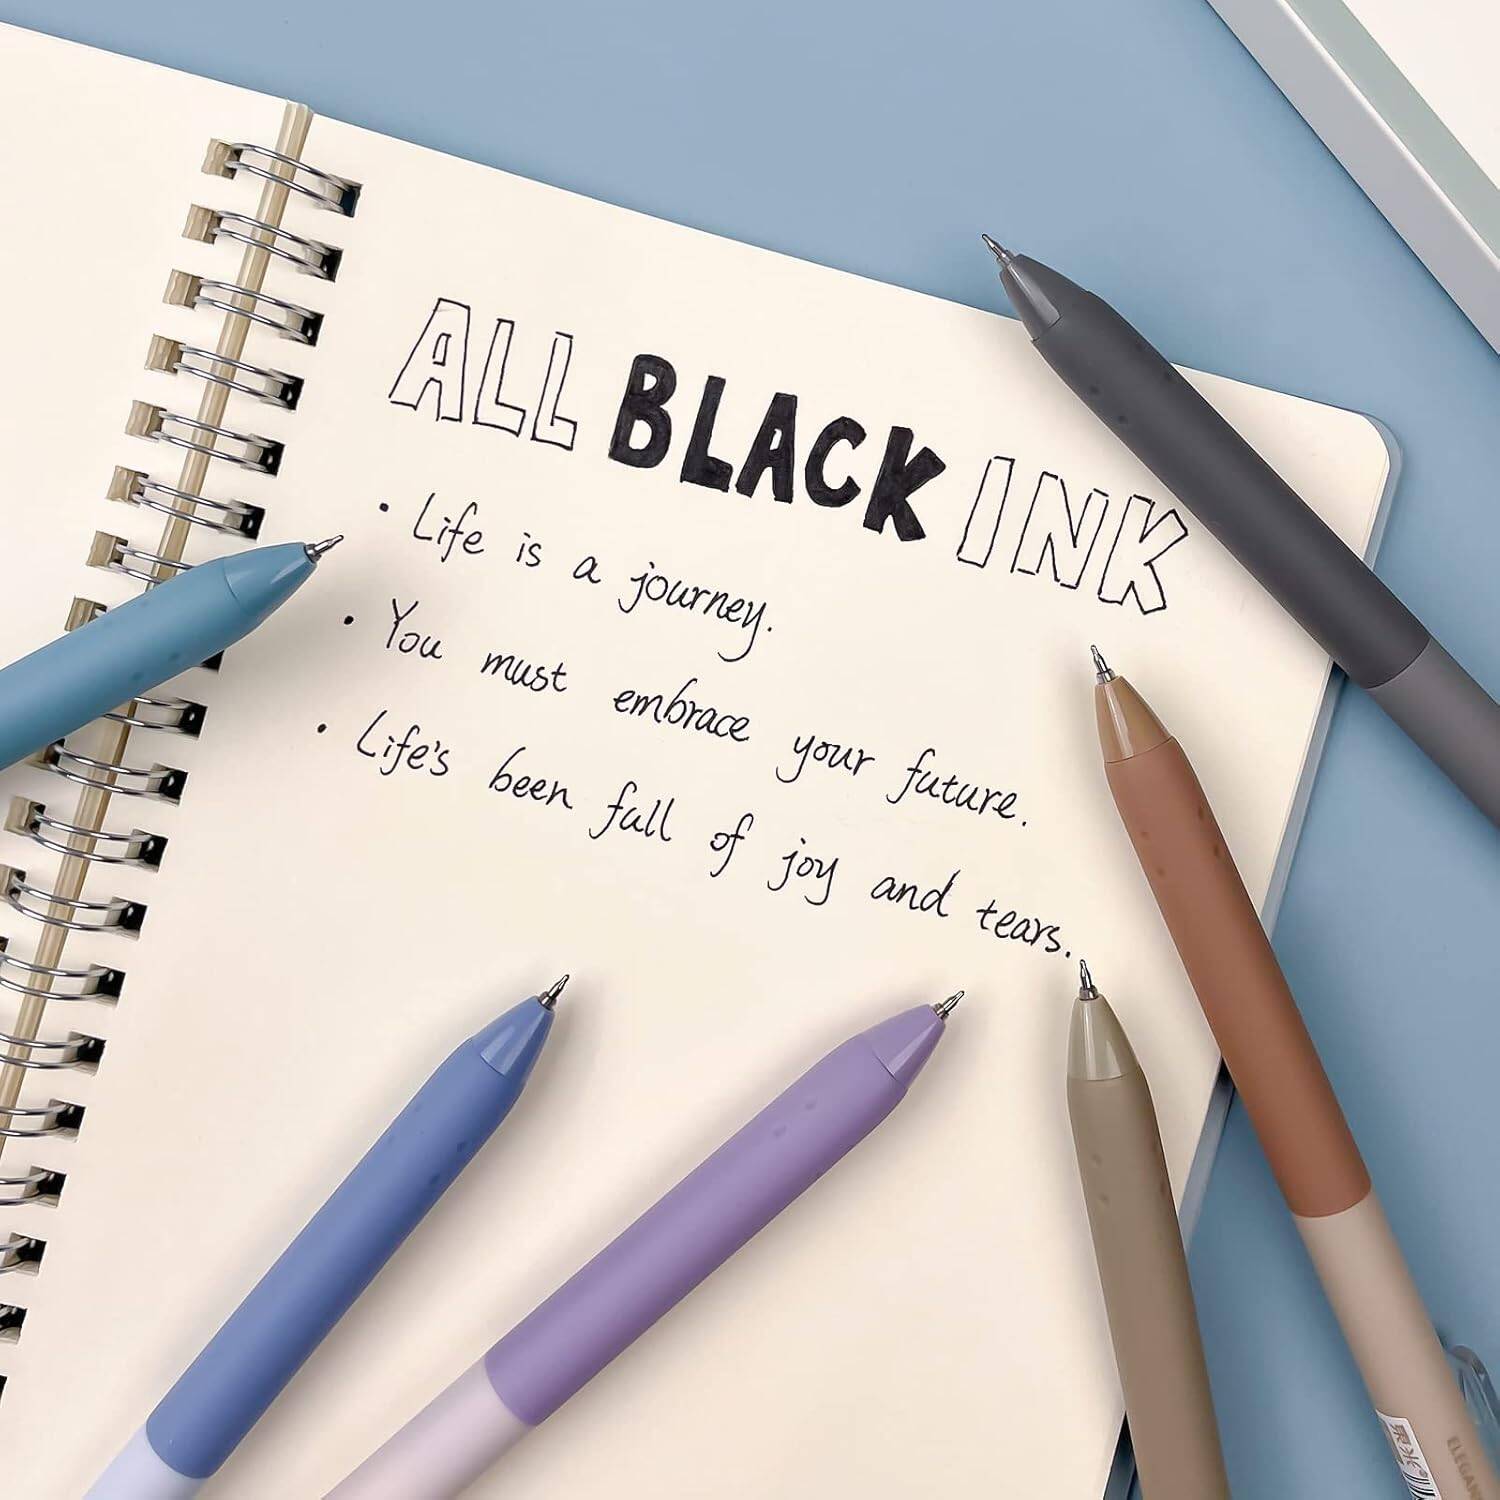 ALL BLACK INK
• Life is a journey.
• You must embrace your future.
• Life's been full of joy and tears.